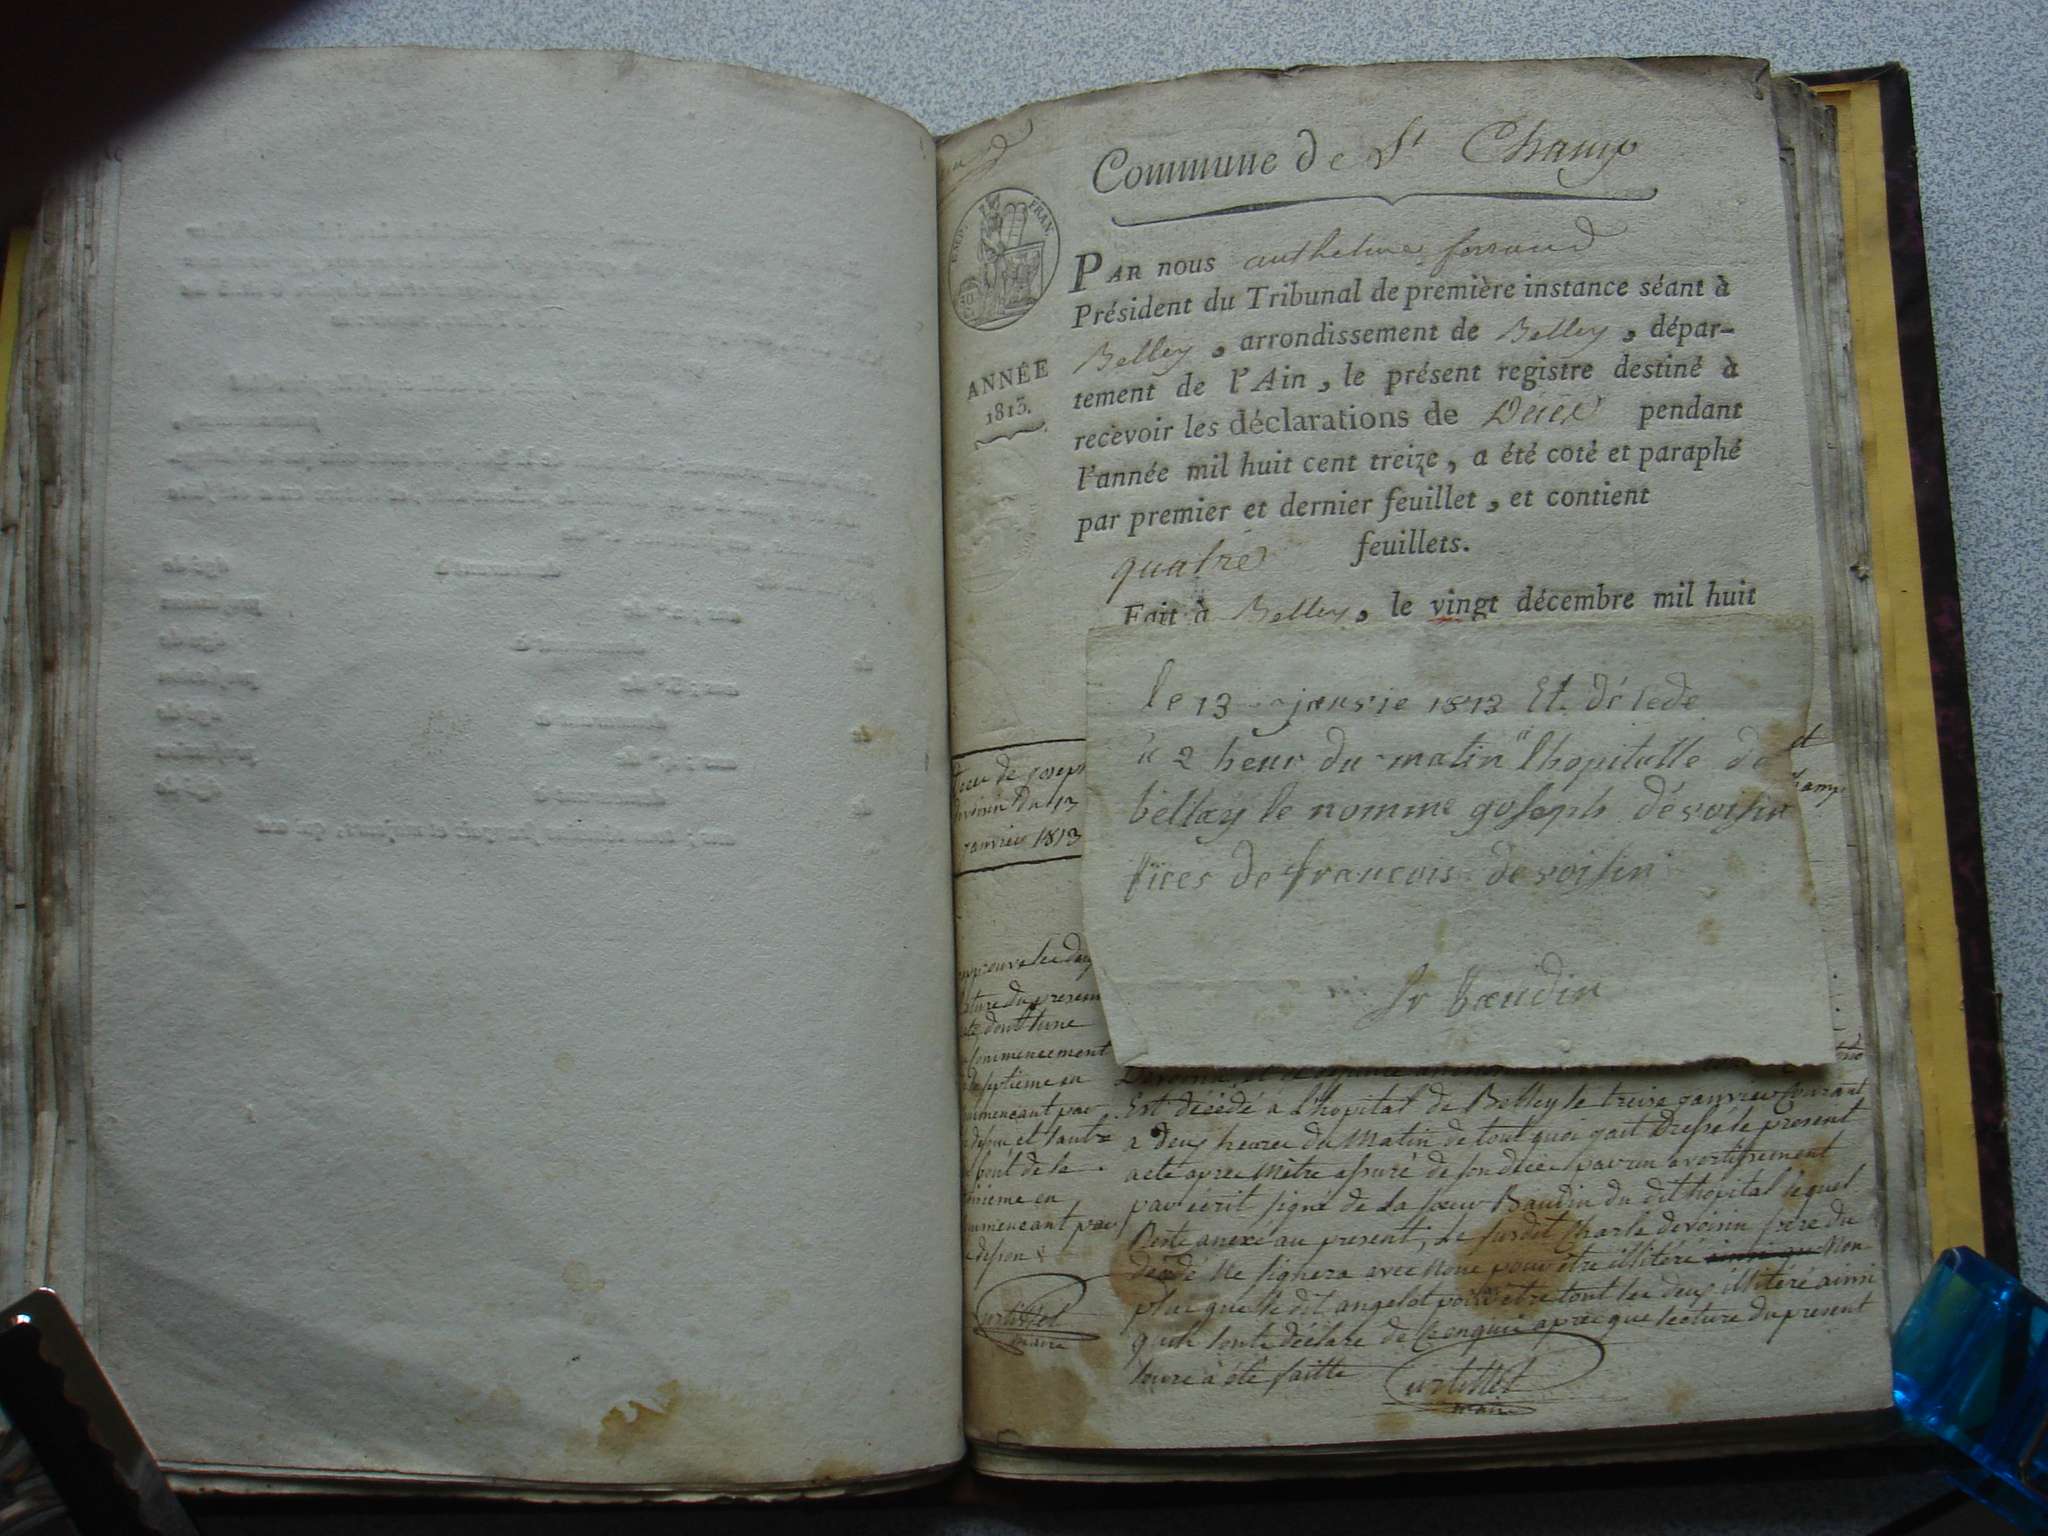 Commune de St Champ
EMP. FRAN.
PAR nous anthelme ferrand
Président du Tribunal de première instance séant à
Belley, arrondissement de Belley, dépar-
tement de l'Ain, le présent registre destiné à
recevoir les déclarations de Décès pendant
l'année mil huit cent treize, a été coté et paraphé
par premier et dernier feuillet, et contient
quatre feuillets.
Fait à Belley, le vingt décembre mil huit
ANNÉE
1813.
le 13 janvie 1813 Et décede
a 2 heur du matin lhopitalle de
bellay le nomme goseph dévoisin
fices de francois devoisin
Sr baudin
de Joseph
devoisin du 13
janvier 1813
du present
dont l'une
commencement
septième en
commencant par
et l'autre
bout de la
en
commencant par
Curtillet
maire
Est décédé à L'hopital de Belley le treize janvier Courant
a deux heures du Matin de tout quoi j'ait Dressé le present
acte apres Mêtre assuré de son décès par un avertissement
par écrit signé de La sœur Baudin du dit hopital lequel
Reste anexé au present, Le susdit Charle devoisin frère du
décédé Ne signera avec Nous pour être illitéré ainsi que Non
plus que le dit angelot pour être tout les deux illitéré ainsi
qu'ils l'ont déclare de Ce enquis apres que lecture du present
leure à été faitte
Curtillet
maire